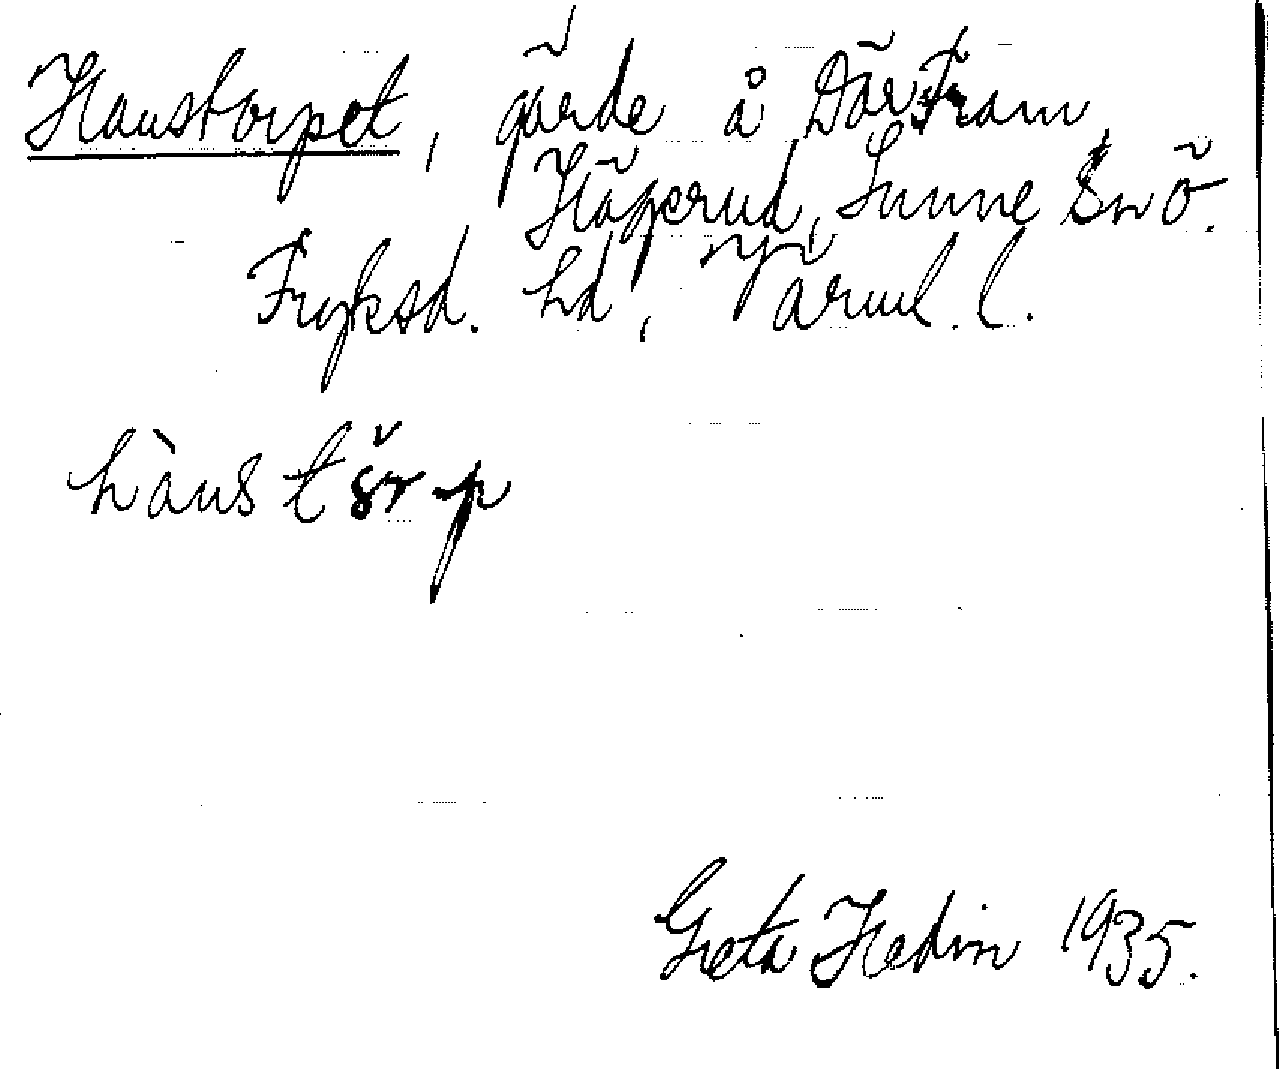 Haustorpet, gärde å Där Fram,
Häggerud, Sunne sn Ö.
Fryksd. hd, Värml. l.
hàus t p
Greta Hedin 1935.